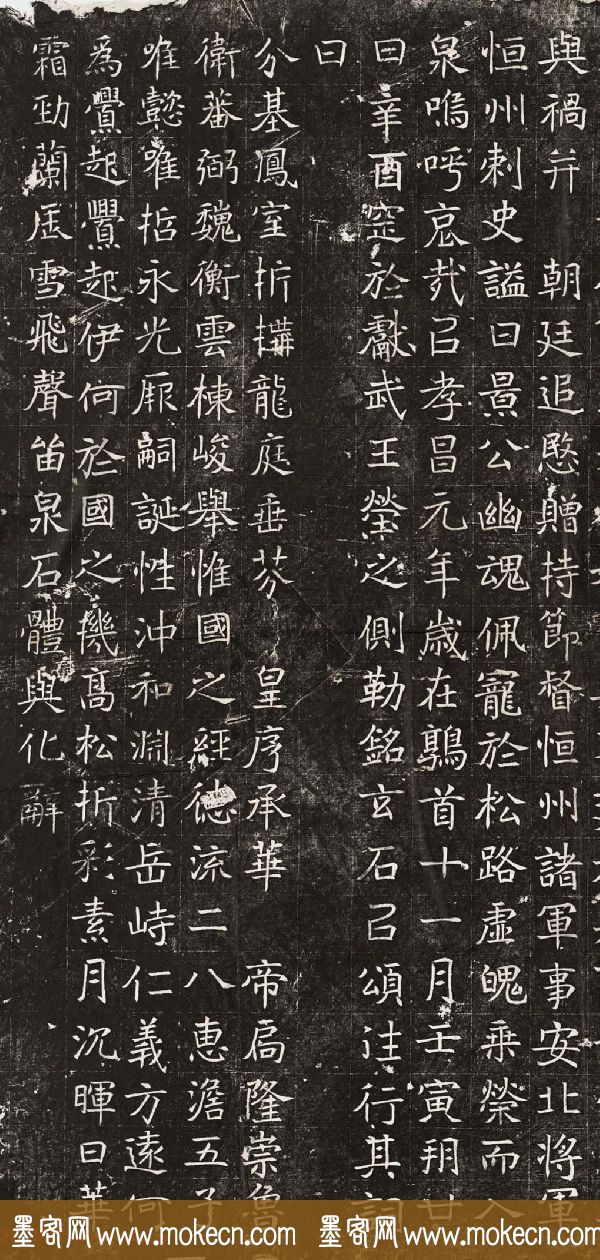 與禍并 朝廷追愍贈持節督恒州諸軍事安北將軍
恒州刺史謚曰景公幽魂佩寵於松路虛魄乘榮而入
泉嗚呼哀㢤㠯孝昌元年歲在鶉首十一月壬寅朔廿
日辛酉窆於獻武王塋之側勒銘玄石㠯頌往行其詞
曰
分基鳳室折構龍庭垂芬 皇序承華 帝扃隆崇魯
衛蕃弼魏衡雲棟峻舉惟國之經德流二八惠澹五子
唯懿唯哲永光厥嗣誕性沖和淵清岳峙仁義方遠何
為舋起舋起伊何於國之機高松折彩素月沉暉曰華
霜勁蘭居雪飛聲留泉石體與化辭
墨客网 www.mokecn.com 墨客网 www.mokecn.com